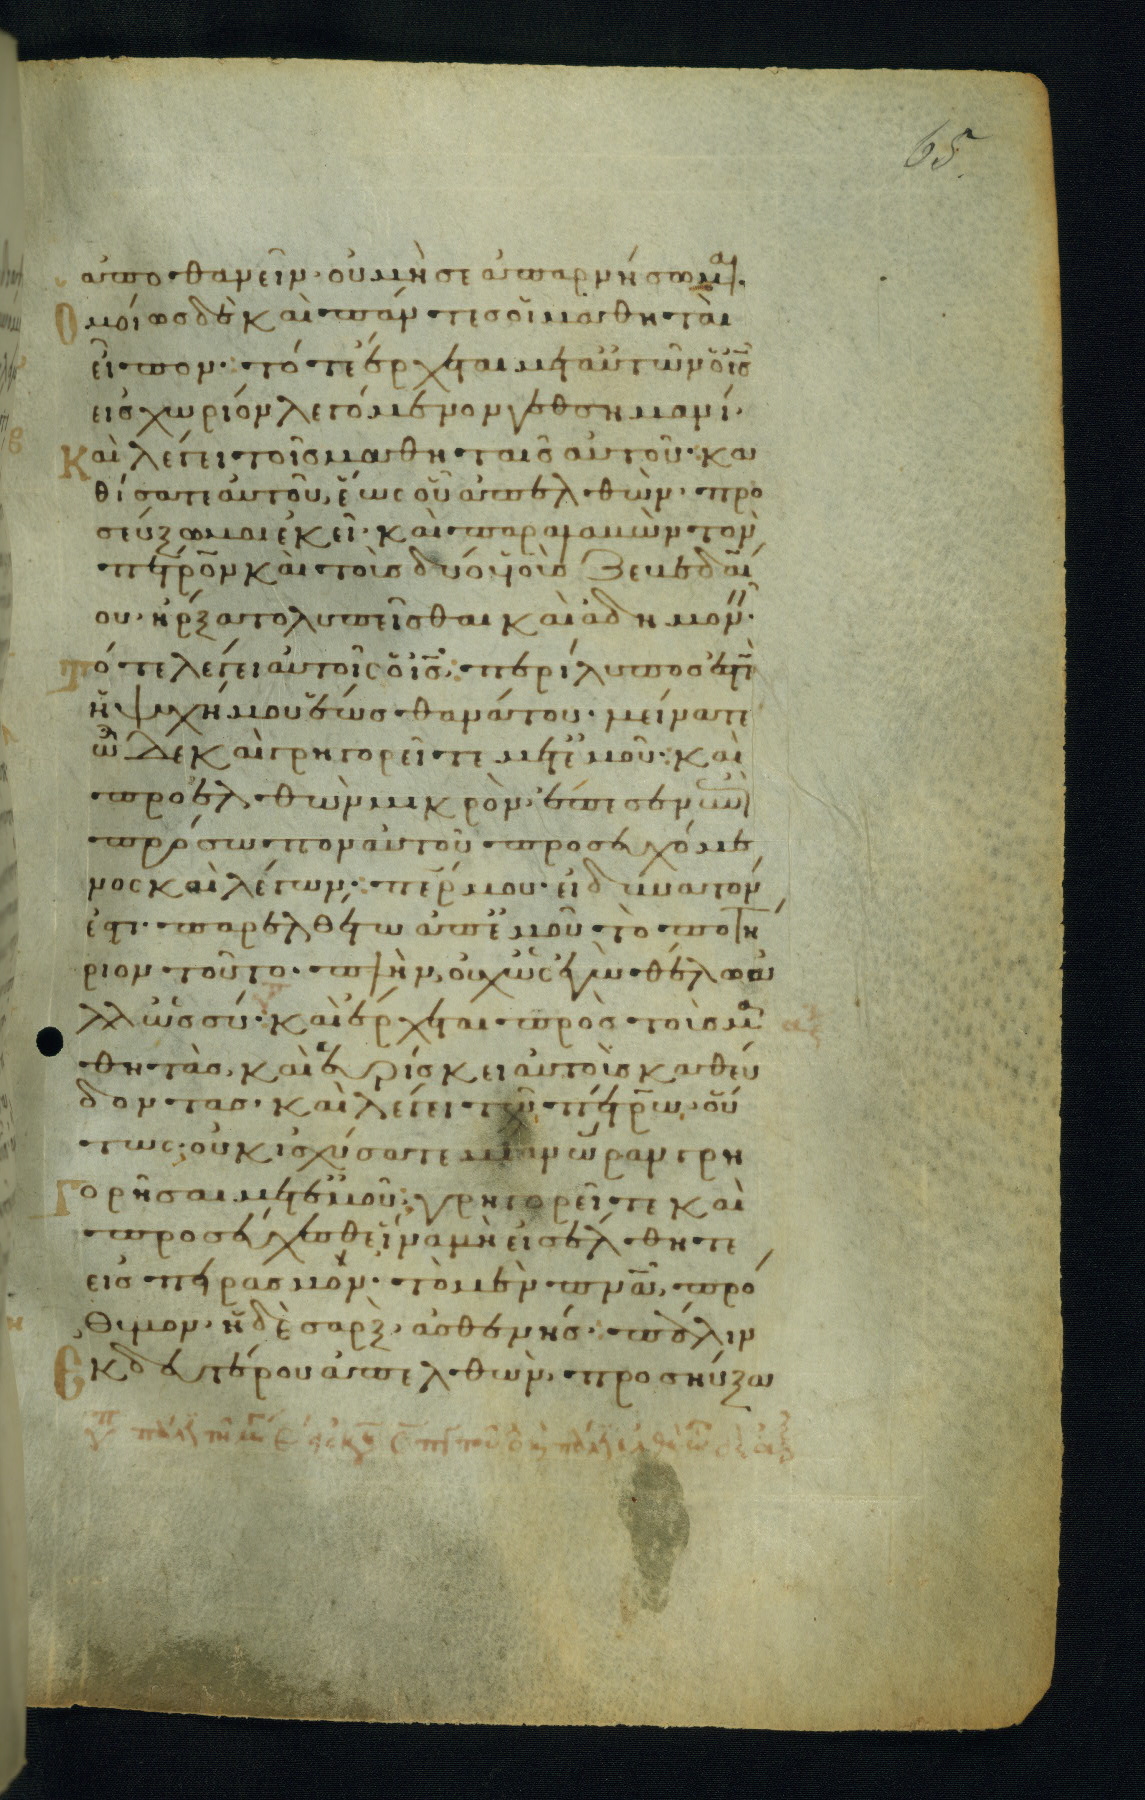 65
ἀποθανεῖν· οὐ μή σε ἀπαρνήσωμαι·
Ὁμοίως δὲ καὶ πάντες οἱ μαθηταὶ
εἶπον· τότε ἔρχεται μετ αὐτῶν ὁ ις
εἰς χωρίον λεγόμενον γεθσημανί·
Καὶ λέγει τοῖς μαθηταῖς αὐτοῦ· κα
θίσατε αὐτοῦ, ἕως οὗ ἀπελθὼν προ
σεύξωμαι ἐκεῖ· καὶ παραλαβὼν τὸν
πέτρον καὶ τοὺς δύο υἱοὺς Ζεβεδαί
ου· ἤρξατο λυπεῖσθαι καὶ ἀδημονεῖν·
Τότε λέγει αὐτοῖς ὁ ις· περίλυπός ἐστιν
ἡ ψυχή μου ἕως θανάτου· μείνατε
ὧδε καὶ γρηγορεῖτε μετ ἐμοῦ· καὶ
προελθὼν μικρὸν· ἔπεσεν ἐπὶ
πρόσωπον αὐτοῦ προσευχόμε
νος καὶ λέγων· περ μου· εἰ δυνατόν
ἐστι· παρελθέτω ἀπ ἐμοῦ τὸ ποτή
ριον τοῦτο· πλὴν οὐχ ὡς ἐγὼ θέλω ἀ
λλ ὡς σύ· καὶ ἔρχεται πρὸς τοὺς μα
θητὰς, καὶ εὑρίσκει αὐτοὺς καθεύ
δοντας· καὶ λέγει τῷ πέτρω· οὕ
τως· οὐκ ἰσχύσατε μίαν ὥραν γρη
Γορῆσαι μετ ἐμοῦ· γρηγορεῖτε καὶ
προσεύχεσθε ἵνα μὴ εἰσέλθητε
εἰς πειρασμόν· τὸ μὲν πνα, πρό
θυμον· ἡ δὲ σαρξ· ἀσθενής· πάλιν
Ἐκ δευτέρου ἀπελθὼν, προσηύξα